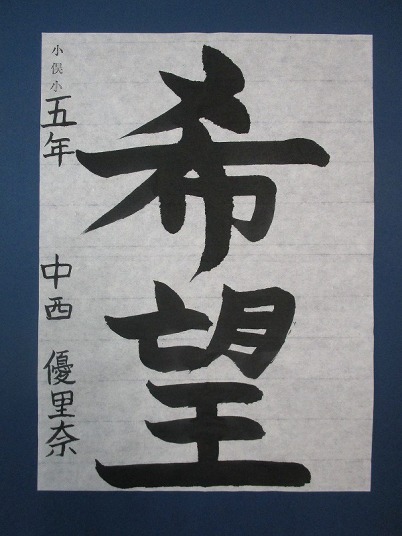 希望
小俣小 五年 中西 優里奈